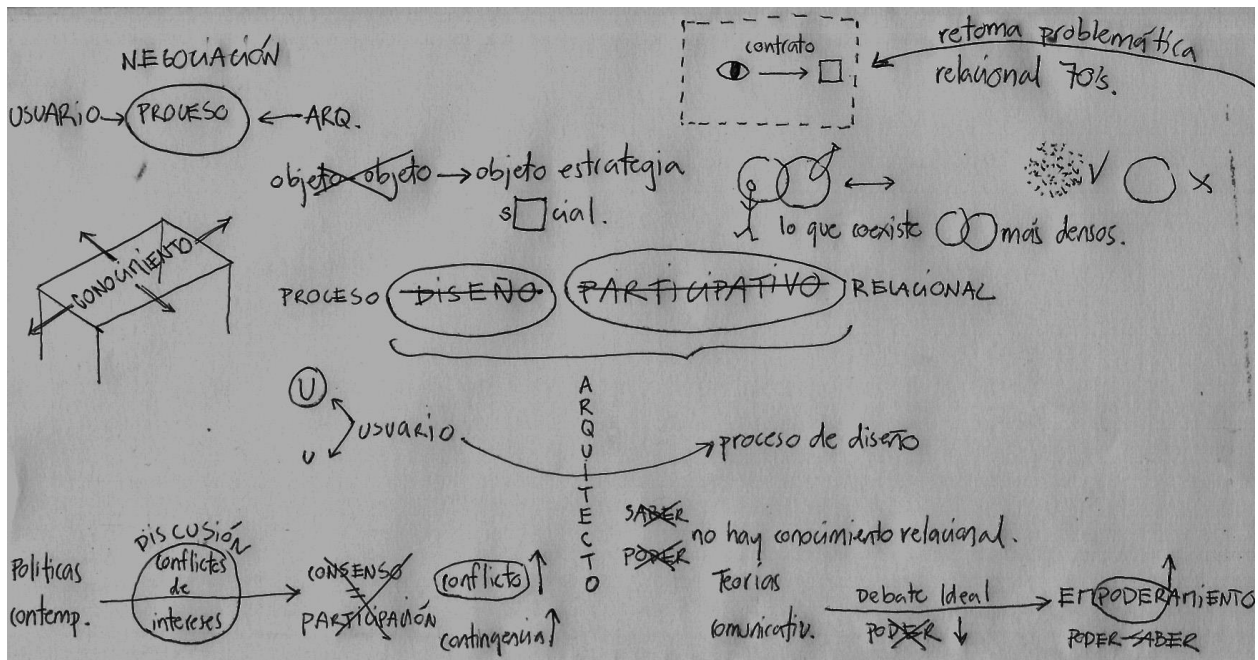 NEGOCIACIÓN
USUARIO → PROCESO ← ARQ.
contrato
retoma problemática
relacional 70's.
objeto objeto → objeto estrategia
s□cial.
lo que coexiste más densos.
CONOCIMIENTO
PROCESO DISEÑO PARTICIPATIVO RELACIONAL
U
U
USUARIO
ARQUITECTO
proceso de diseño
SABER
PODER
no hay conocimiento relacional.
Políticas
contemp.
DISCUSIÓN
conflictos
de
intereses
CONSENSO
=
PARTICIPACIÓN
conflicto
contingencia
Teorías
comunicativ.
Debate Ideal
PODER
EMPODERAMIENTO
PODER-SABER